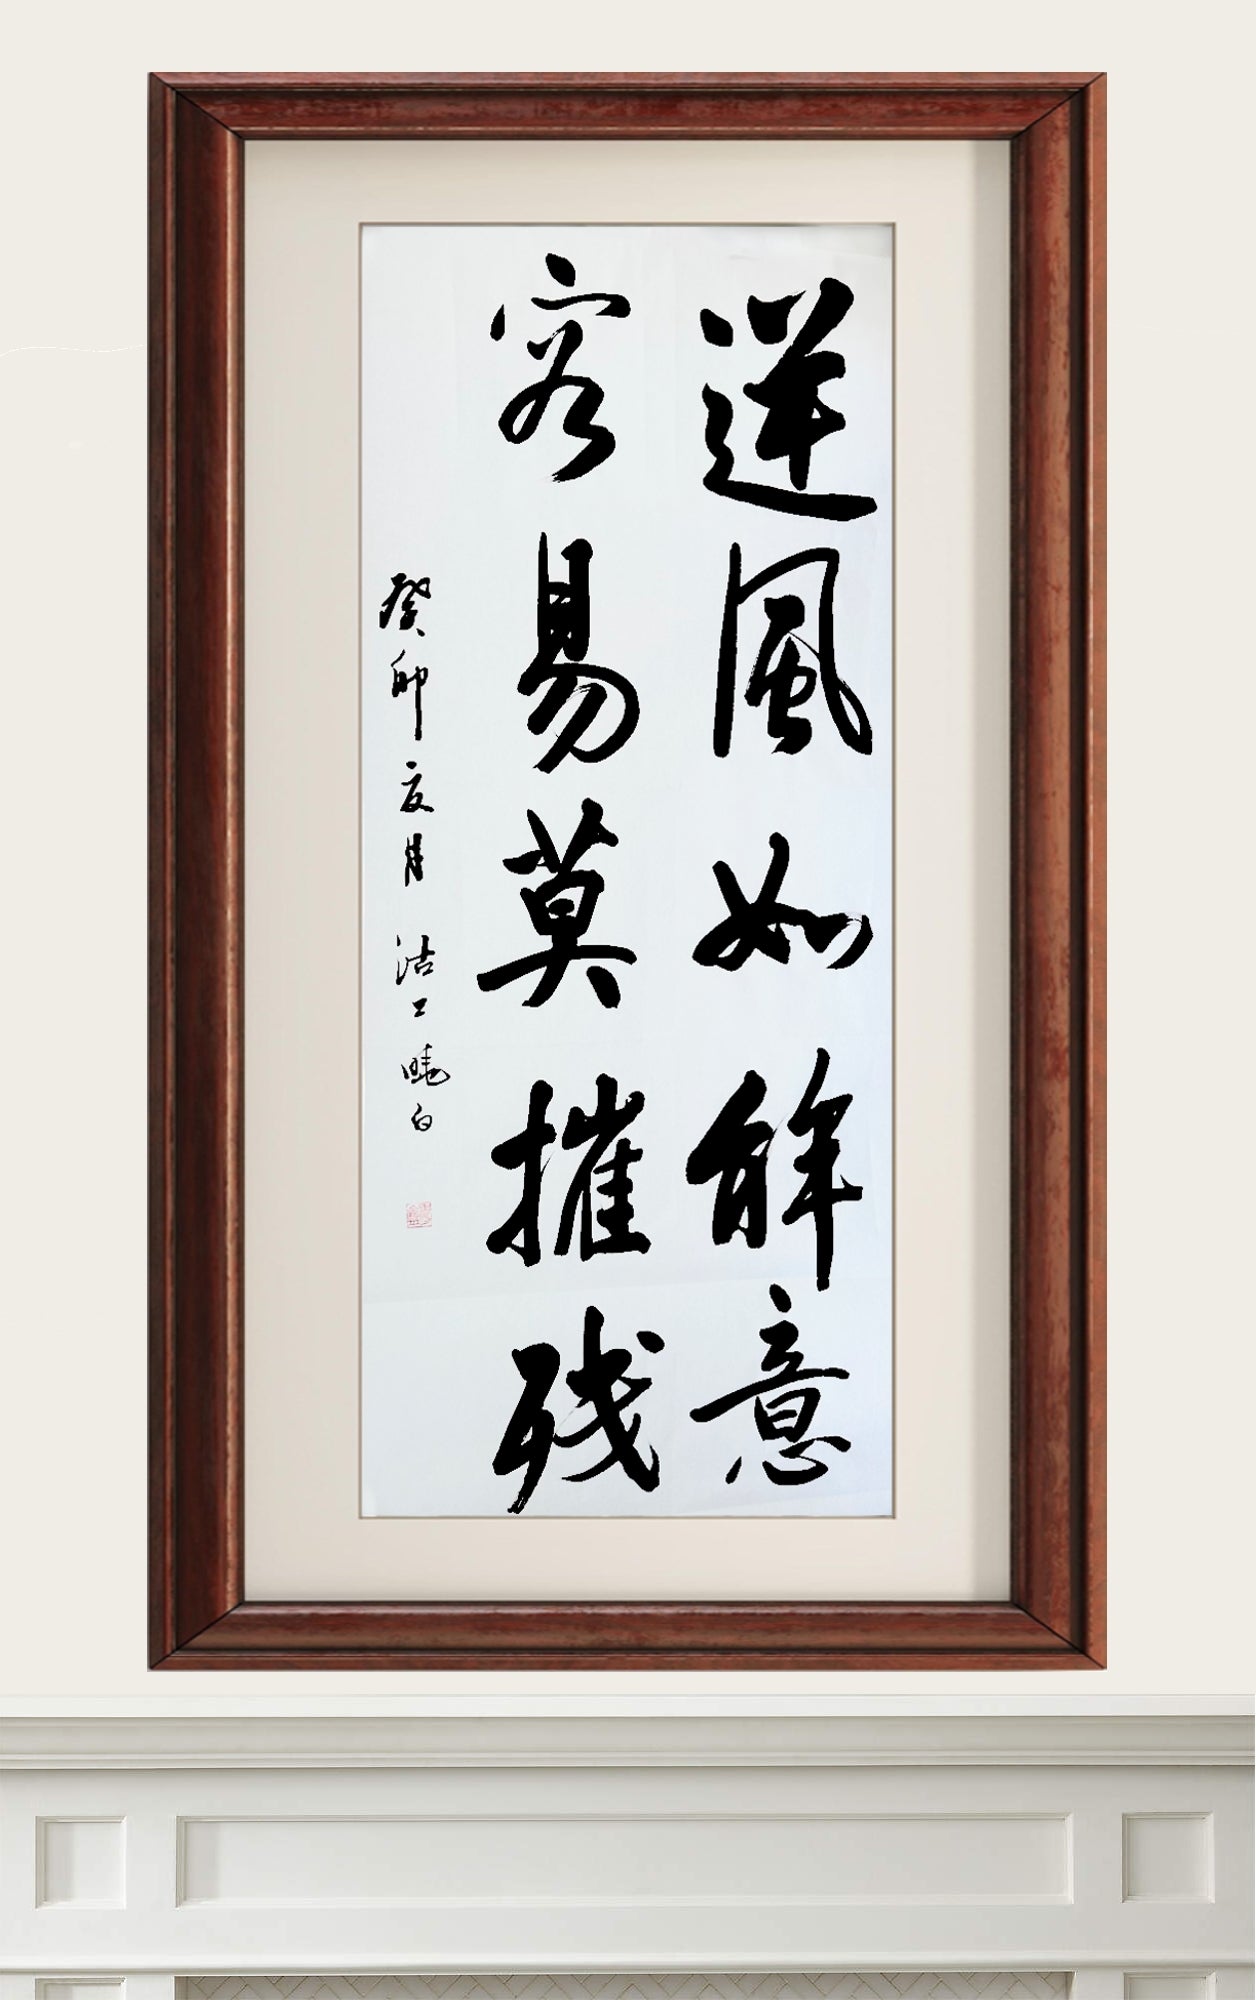 逆風如解意
容易莫摧残
癸卯夏月沽上晓白